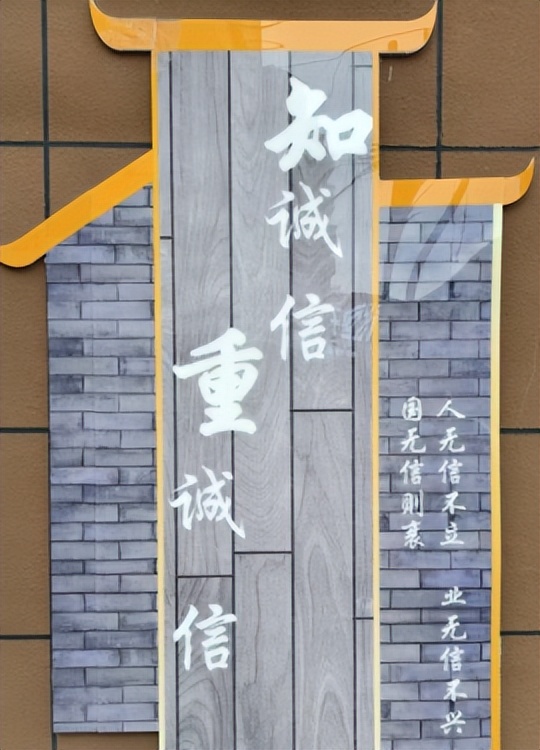 知诚信
重诚信
人无信不立 业无信不兴
国无信则衰